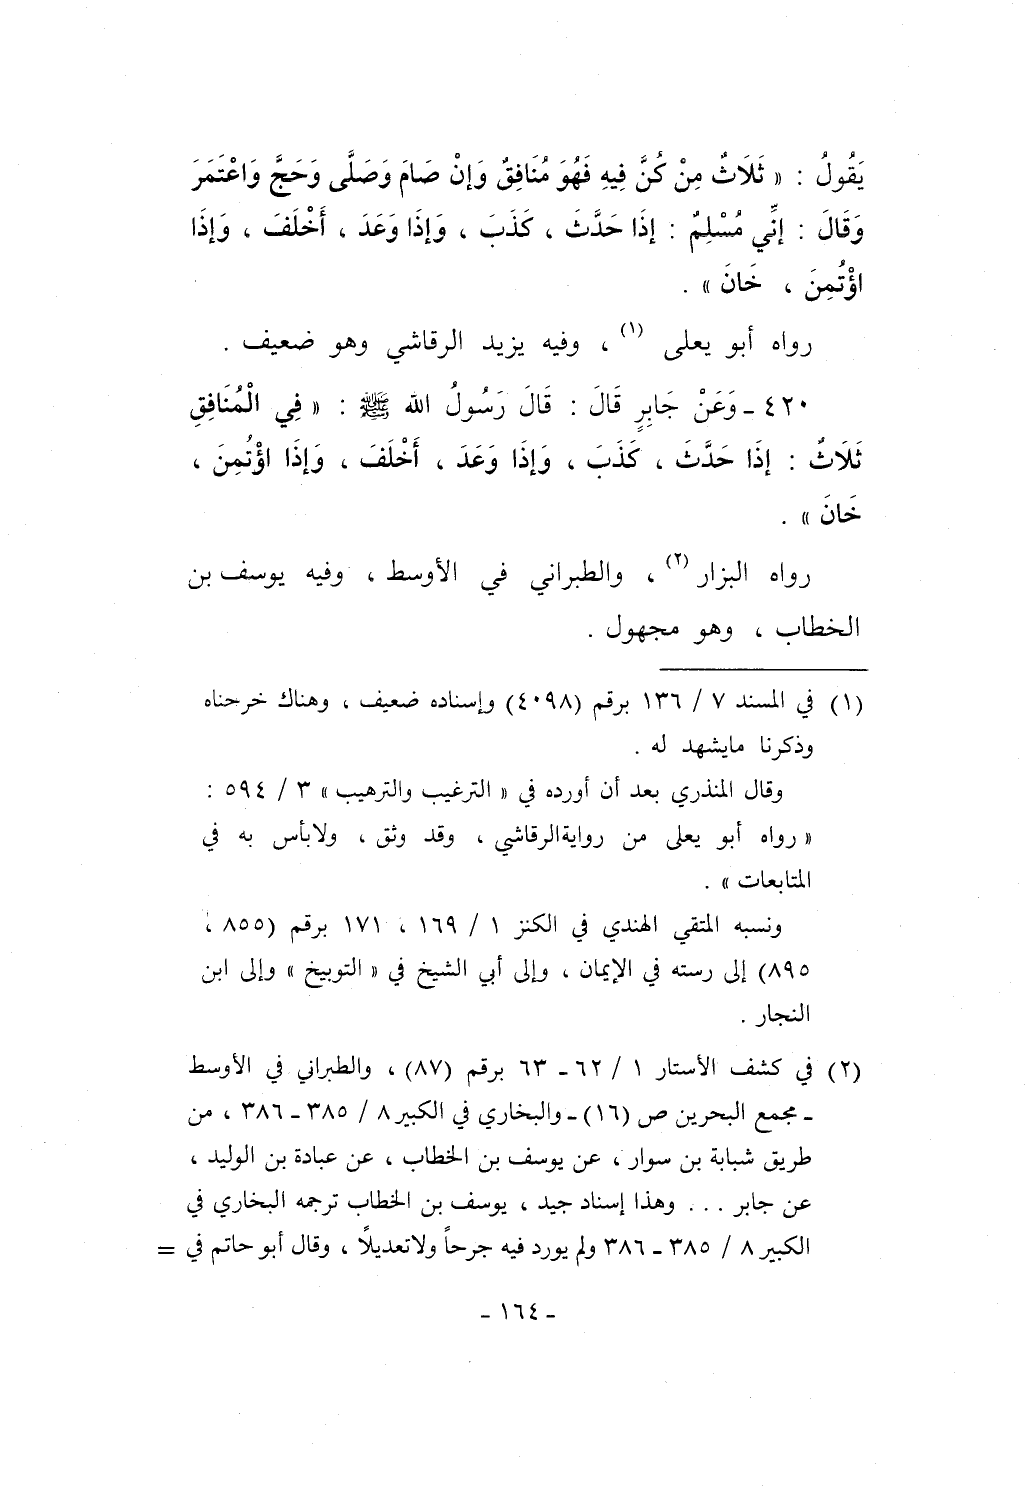 يَقُولُ : « ثَلَاثٌ مِنْ كُنَّ فِيهِ فَهُوَ مُنَافِقٌ وَإِنْ صَامَ وَصَلَّى وَحَجَّ وَاعْتَمَرَ
وَقَالَ : إنِّي مُسْلِمٌ : إذَا حَدَّثَ ، كَذَبَ ، وَإذَا وَعَدَ ، أَخْلَفَ ، وَإذَا
اؤْتُمِنَ ، خَانَ » .
رواه أبو يعلى (١) ، وفيه يزيد الرقاشي وهو ضعيف .
٤٢٠ ـ وَعَنْ جَابِرٍ قَالَ : قَالَ رَسُولُ الله ﷺ : « فِي الْمُنَافِقِ
ثَلَاثٌ : إذَا حَدَّثَ ، كَذَبَ ، وَإذَا وَعَدَ ، أَخْلَفَ ، وَإذَا اؤْتُمِنَ ،
خَانَ » .
رواه البزار (٢) ، والطبراني في الأوسط ، وفيه يوسف بن
الخطاب ، وهو مجهول .
(١) في المسند ٧ / ١٣٦ برقم (٤٠٩٨) وإسناده ضعيف ، وهناك خرجناه
وذكرنا مايشهد له .
وقال المنذري بعد أن أورده في « الترغيب والترهيب » ٣ / ٥٩٤ :
« رواه أبو يعلى من روايةالرقاشي ، وقد وثق ، ولابأس به في
المتابعات » .
ونسبه المتقي الهندي في الكنز ١ / ١٦٩ ، ١٧١ برقم (٨٥٥ ،
٨٩٥) إلى رسته في الإيمان ، وإلى أبي الشيخ في « التوبيخ » وإلى ابن
النجار .
(٢) في كشف الأستار ١ / ٦٢ ـ ٦٣ برقم (٨٧) ، والطبراني في الأوسط
ـ مجمع البحرين ص (١٦) ـ والبخاري في الكبير ٨ / ٣٨٥ ـ ٣٨٦ ، من
طريق شبابة بن سوار ، عن يوسف بن الخطاب ، عن عبادة بن الوليد ،
عن جابر ... وهذا إسناد جيد ، يوسف بن الخطاب ترجمه البخاري في
الكبير ٨ / ٣٨٥ ـ ٣٨٦ ولم يورد فيه جرحاً ولاتعديلاً ، وقال أبو حاتم في =
ـ ١٦٤ ـ